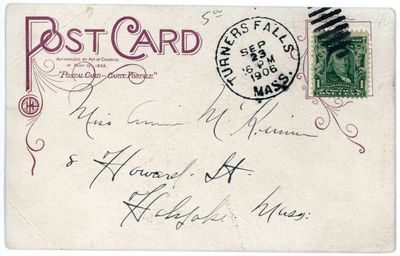 5¢
POST CARD
AUTHORIZED BY ACT OF CONGRESS
OF MAY 19, 1898.
"POSTAL CARD — CARTE POSTALE."
TURNERS FALLS
SEP
23
6 PM
1906
MASS.
Miss Annie McKinnis
8 Howard St
Holyoke Mass: